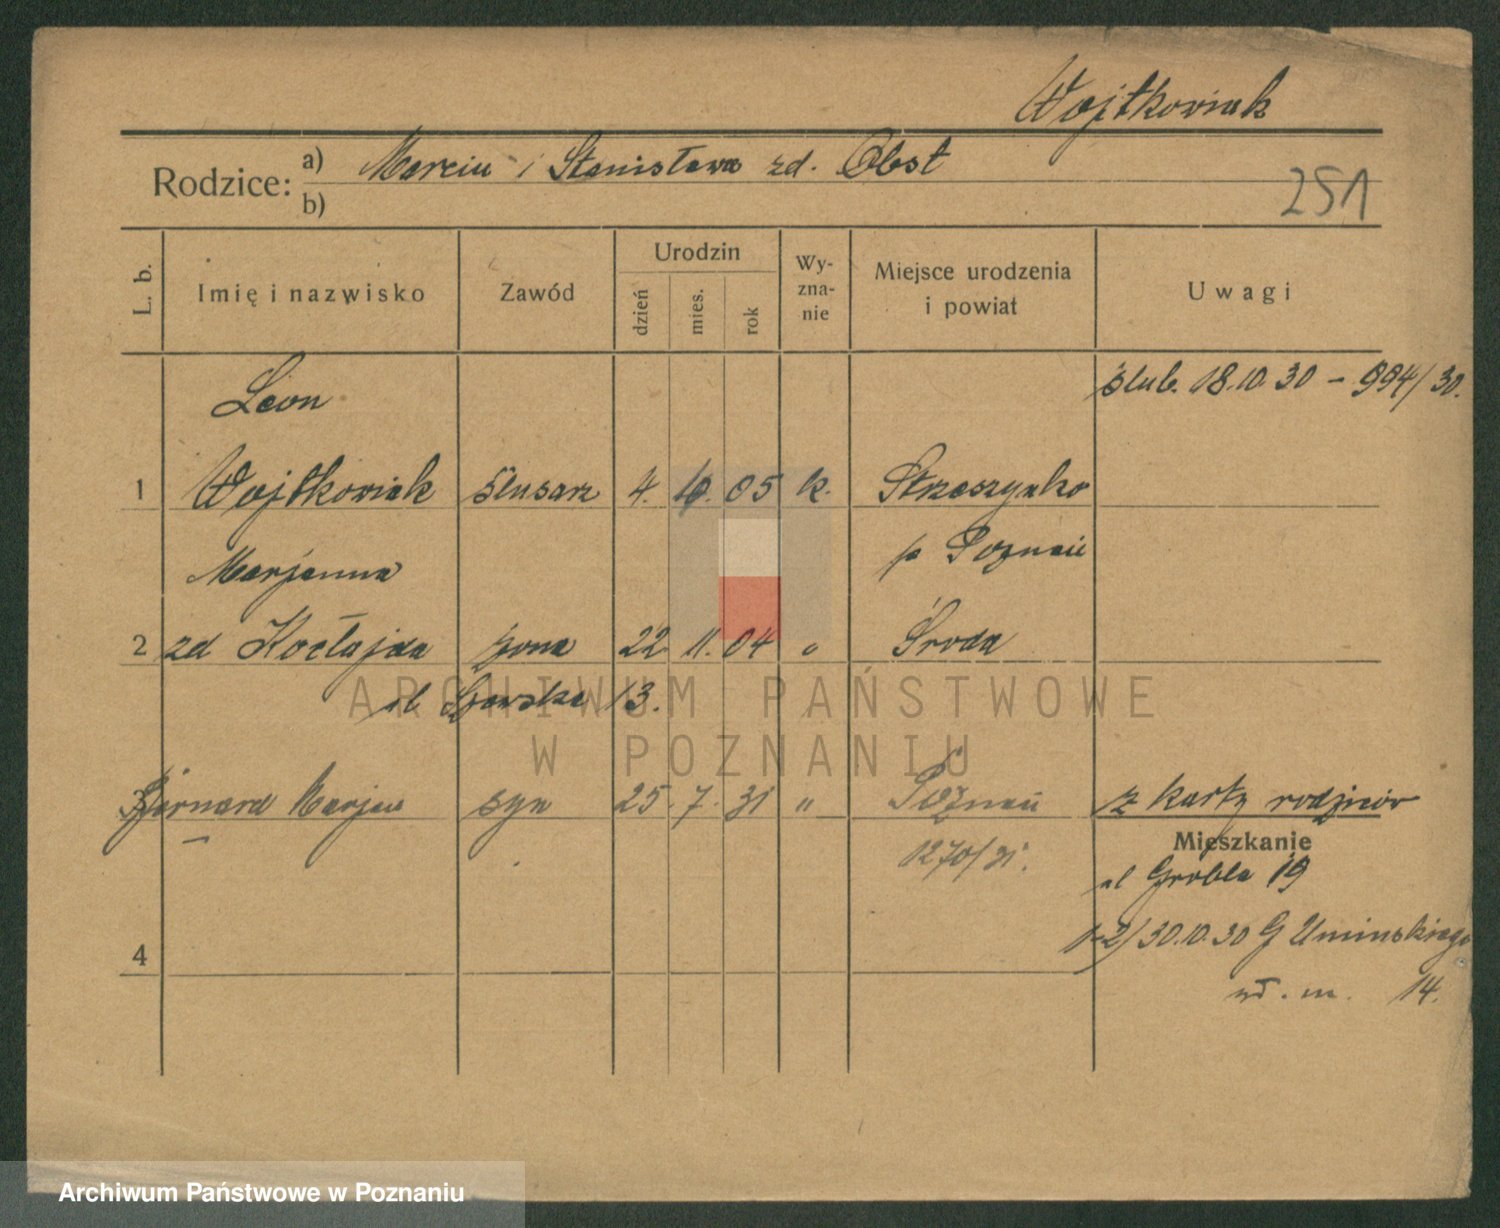 Wojtkowiak
Rodzice: a) Marcin i Stanisława zd. Obst
b)
251
L. b. Imię i nazwisko Zawód Urodzin dzień mies. rok Wyznanie Miejsce urodzenia i powiat Uwagi
Leon ślub. 18.10.30 – 994/30.
1 Wojtkowiak ślusarz 4. 05 k. Strzeszynko
Marjanna p Poznań
2 zd Kocłajda żona 22 11. 04 " Środa
ul 13.
ARCHIWUM PAŃSTWOWE
W POZNANIU
3 Bernard Marjan syn 25. 7. 31 " Poznań z karty rodziców
1270/31. Mieszkanie
ul Grobla 19
1-2/30.10.30 G Umińskiego
4
wł. m. 14.
Archiwum Państwowe w Poznaniu